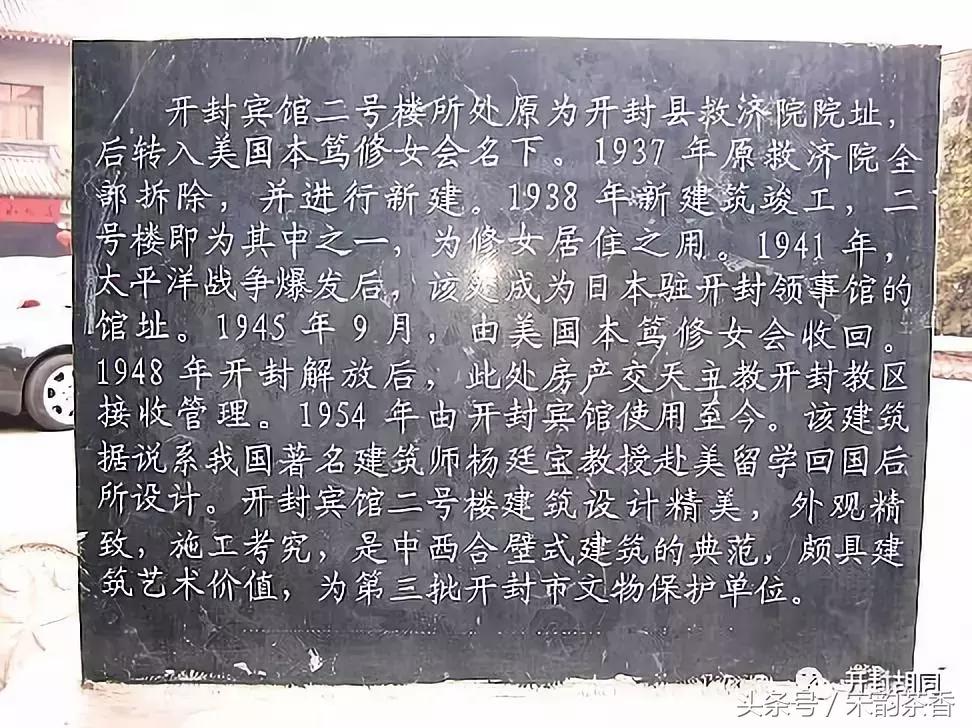 开封宾馆二号楼所处原为开封县救济院院址，
后转入美国本笃修女会名下。1937 年原救济院全
部拆除，并进行新建。1938 年新建筑竣工，二
号楼即为其中之一，为修女居住之用。1941 年，
太平洋战争爆发后，该处成为日本驻开封领事馆的
馆址。1945 年 9 月，由美国本笃修女会收回。
1948 年开封解放后，此处房产交天主教开封教区
接收管理。1954 年由开封宾馆使用至今。该建筑
据说系我国著名建筑师杨廷宝教授赴美留学回国后
所设计。开封宾馆二号楼建筑设计精美，外观精
致，施工考究，是中西合壁式建筑的典范，颇具建
筑艺术价值，为第三批开封市文物保护单位。
开封胡同
头条号 / 宋韵茶香